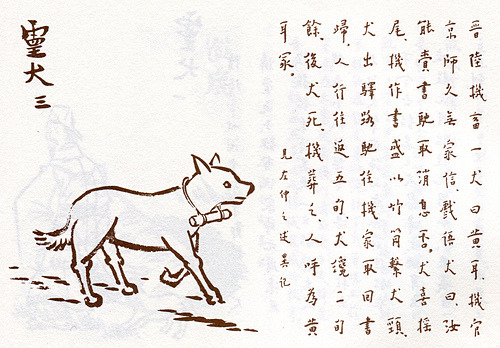 晉陸機畜一犬曰黃耳、機官
京師久無家信、戲語犬曰、汝
能賫書馳取消息否。犬喜搖
尾、機作書盛以竹筒繫犬頸
犬出驛路馳往機家取回書
歸、人行往返五旬、犬纔二旬
餘、後犬死、機葬之、人呼為黃
耳冢。
見左仲之述異記
靈犬三